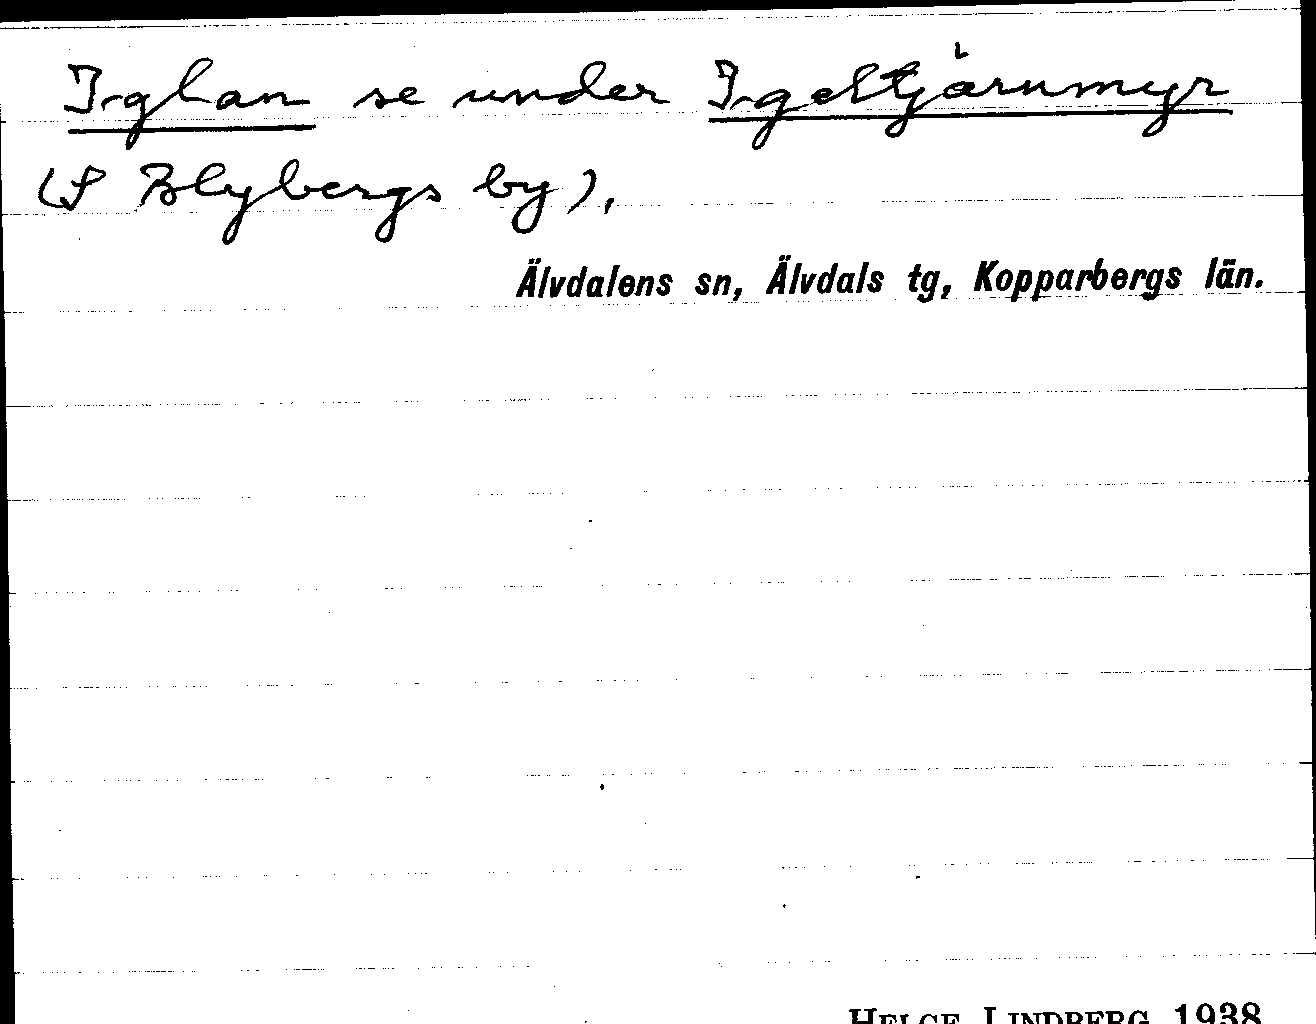 Iglan se under Igeltjärnmyr
(I Blybergs by),
Älvdalens sn, Älvdals tg, Kopparbergs län.
HELGE LINDBERG 1938